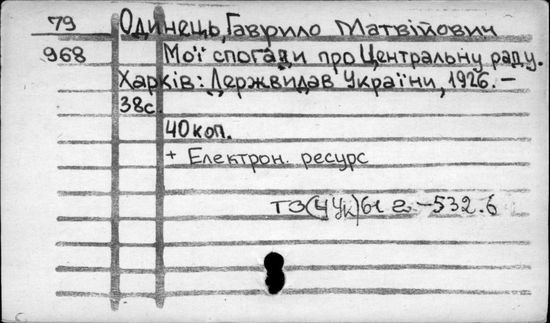 79 Одинець, Гаврило Матвійович
968 Мої спогади про Центральну раду.
Харків: Держвидав України, 1926. –
38с.
40 коп.
+ Електрон. ресурс
ТЗ(4Ук)61 г. –532.6